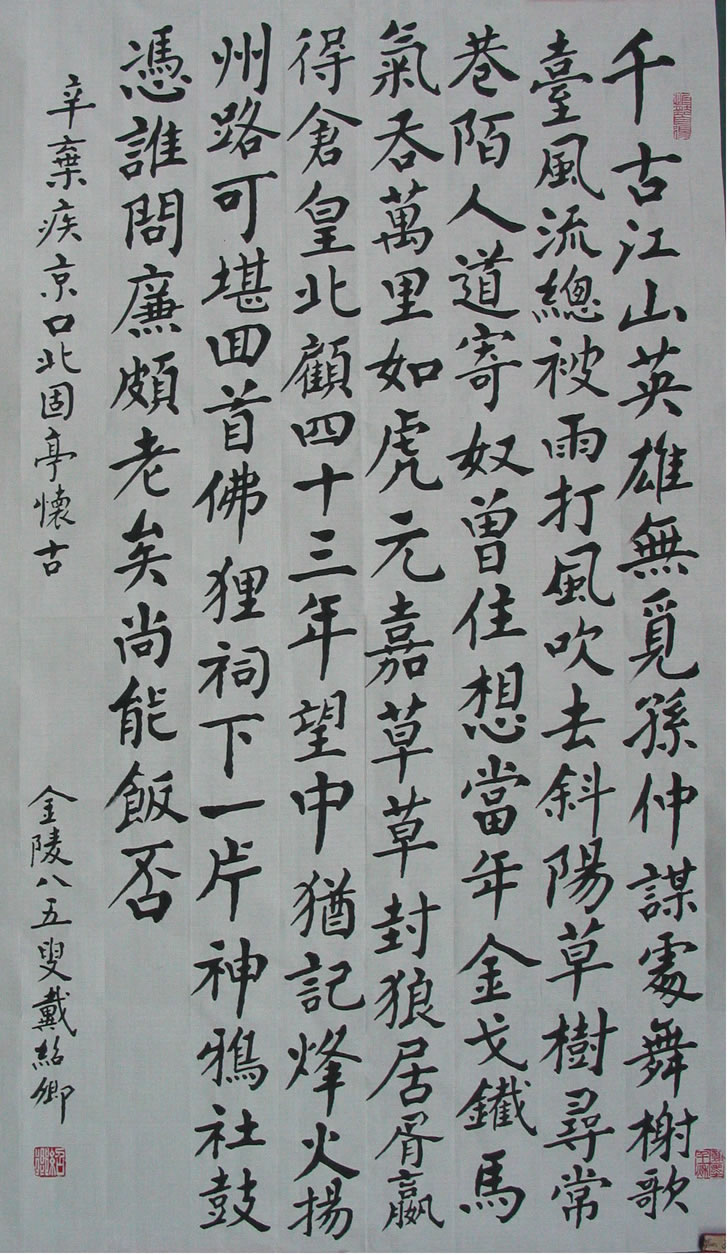 千古江山英雄無覓孫仲謀處舞榭歌
臺風流總被雨打風吹去斜陽草樹尋常
巷陌人道寄奴曾住想當年金戈鐵馬
氣吞萬里如虎元嘉草草封狼居胥嬴
得倉皇北顧四十三年望中猶記烽火揚
州路可堪回首佛狸祠下一片神鴉社鼓
憑誰問廉頗老矣尚能飯否
辛棄疾京口北固亭懷古
金陵八五叟戴紹卿